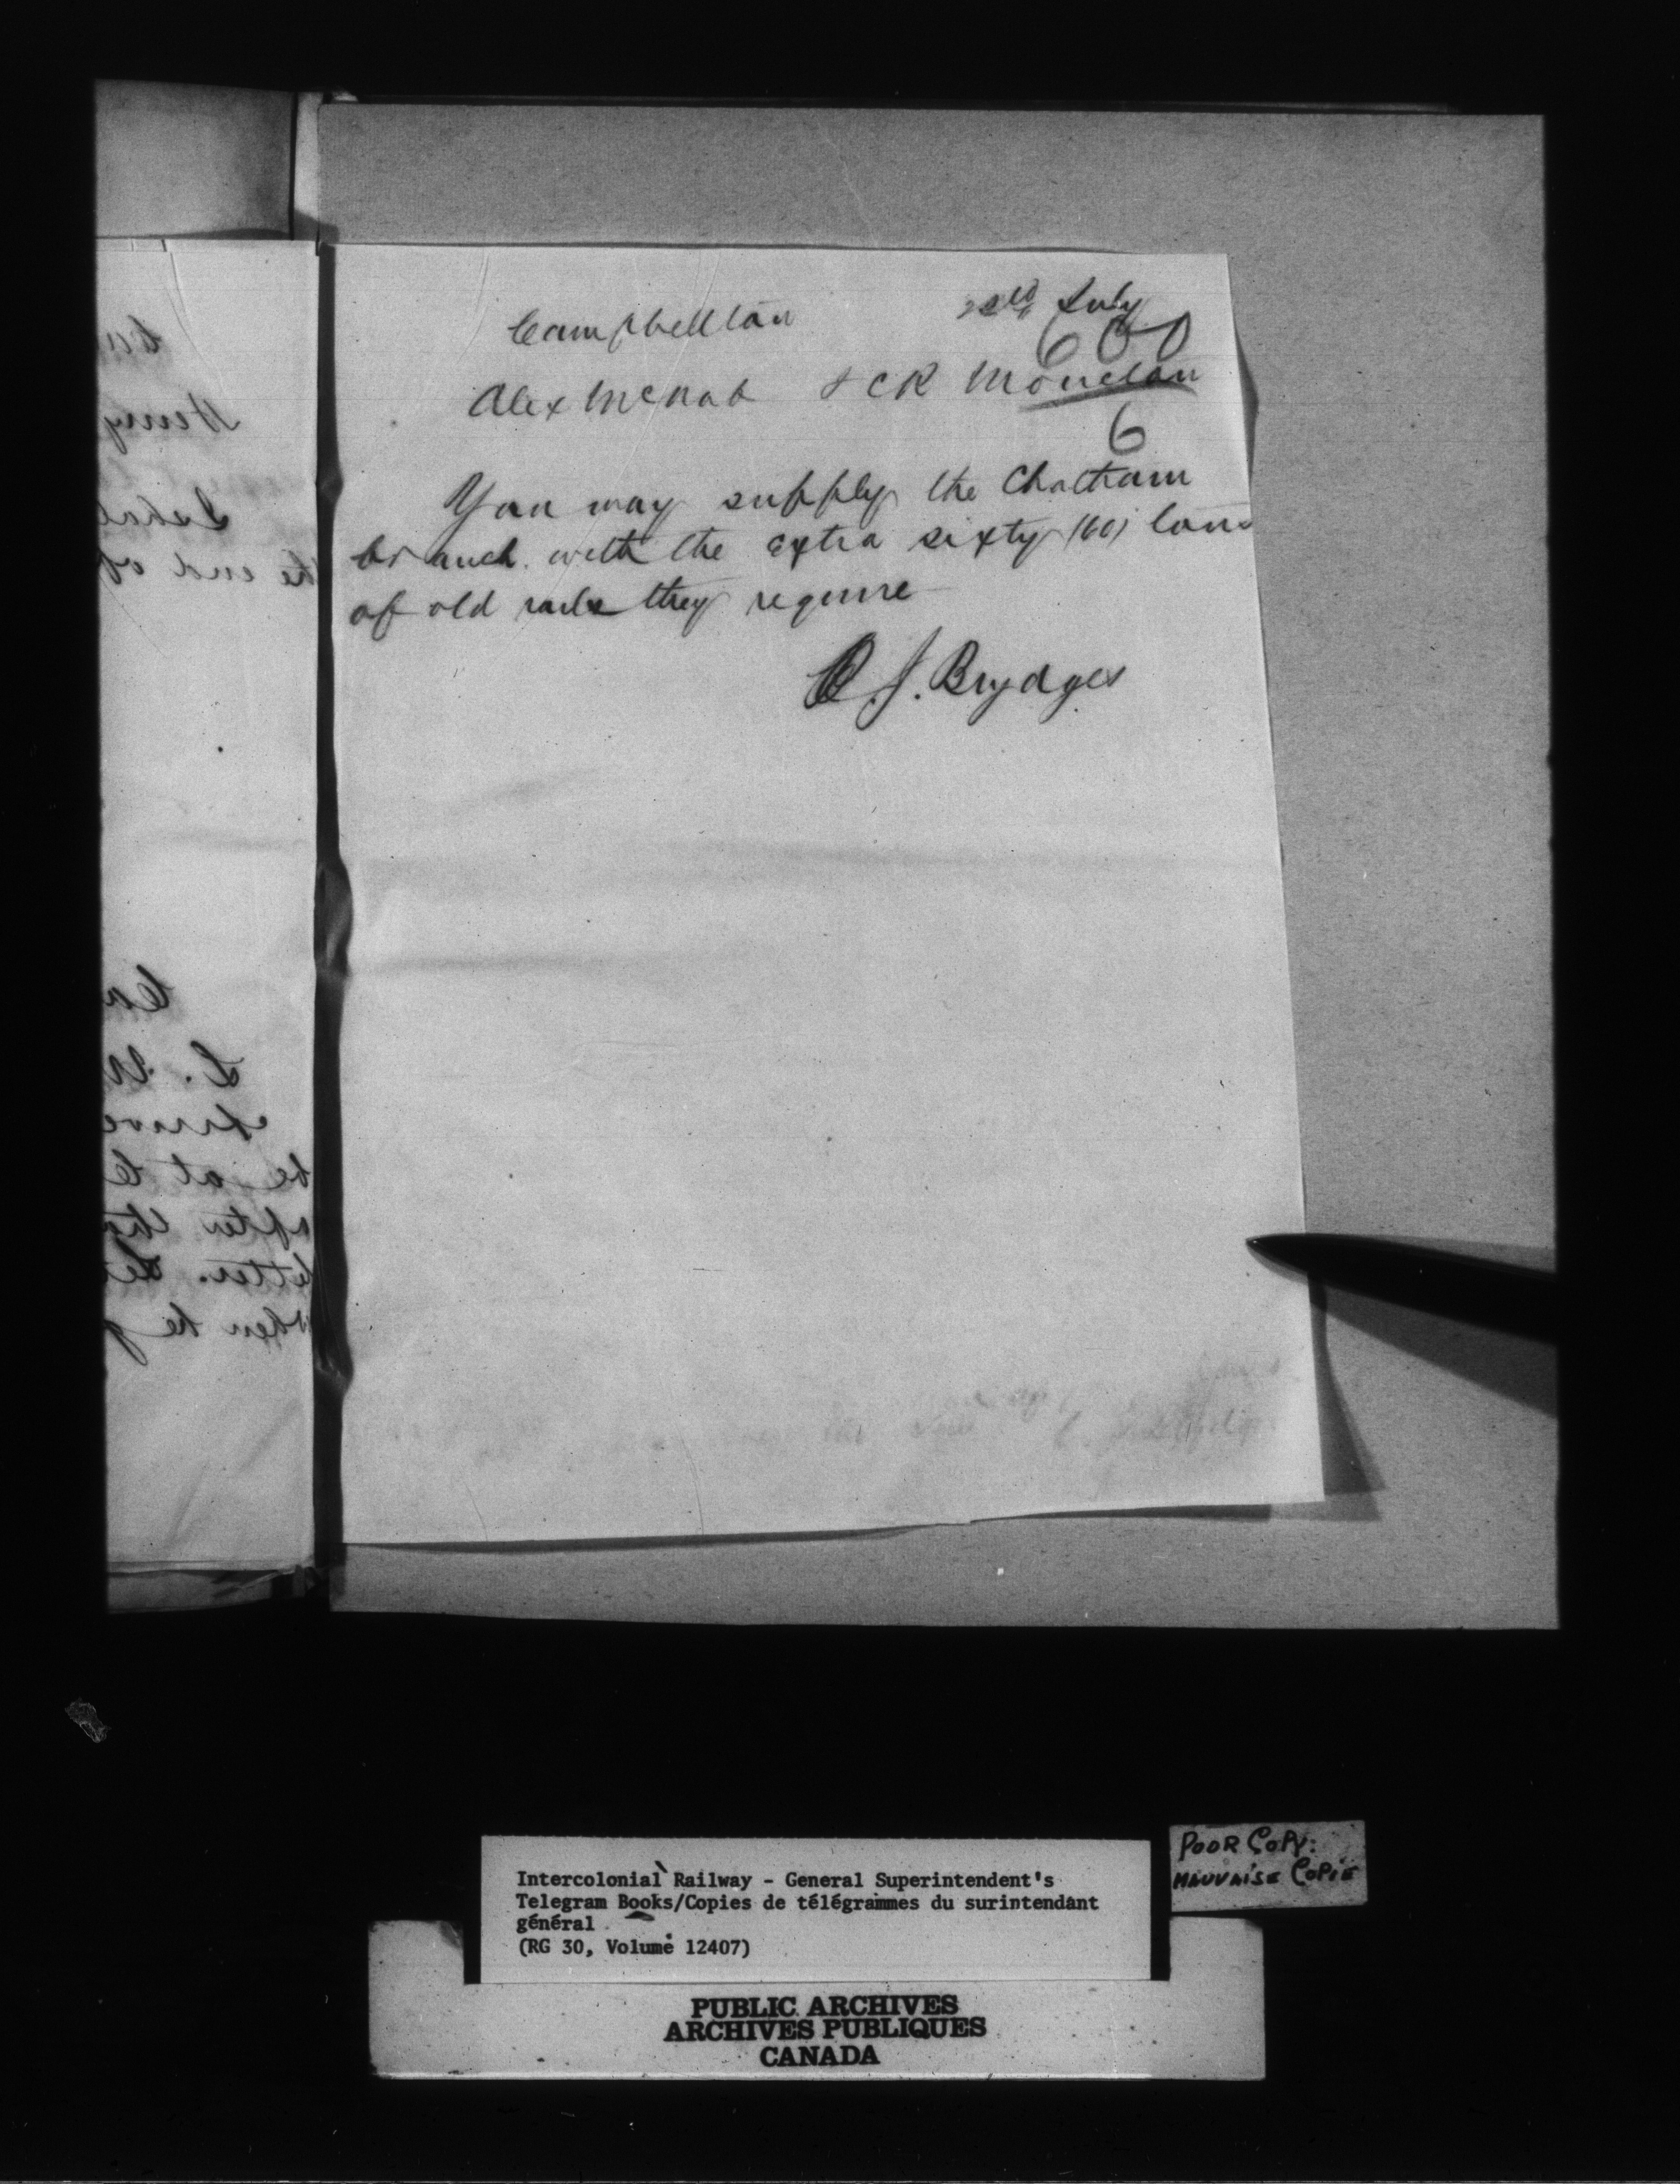 Campbellton 22nd July
600
Alex McNab ICR Moncton
6
You may supply the Chatham
branch with the extra sixty (60) tons
of old rails they require
C. J. Brydges
Intercolonial Railway - General Superintendent's
Telegram Books/Copies de télégrammes du surintendant
général
(RG 30, Volume 12407)
POOR COPY:
MAUVAISE COPIE
PUBLIC ARCHIVES
ARCHIVES PUBLIQUES
CANADA